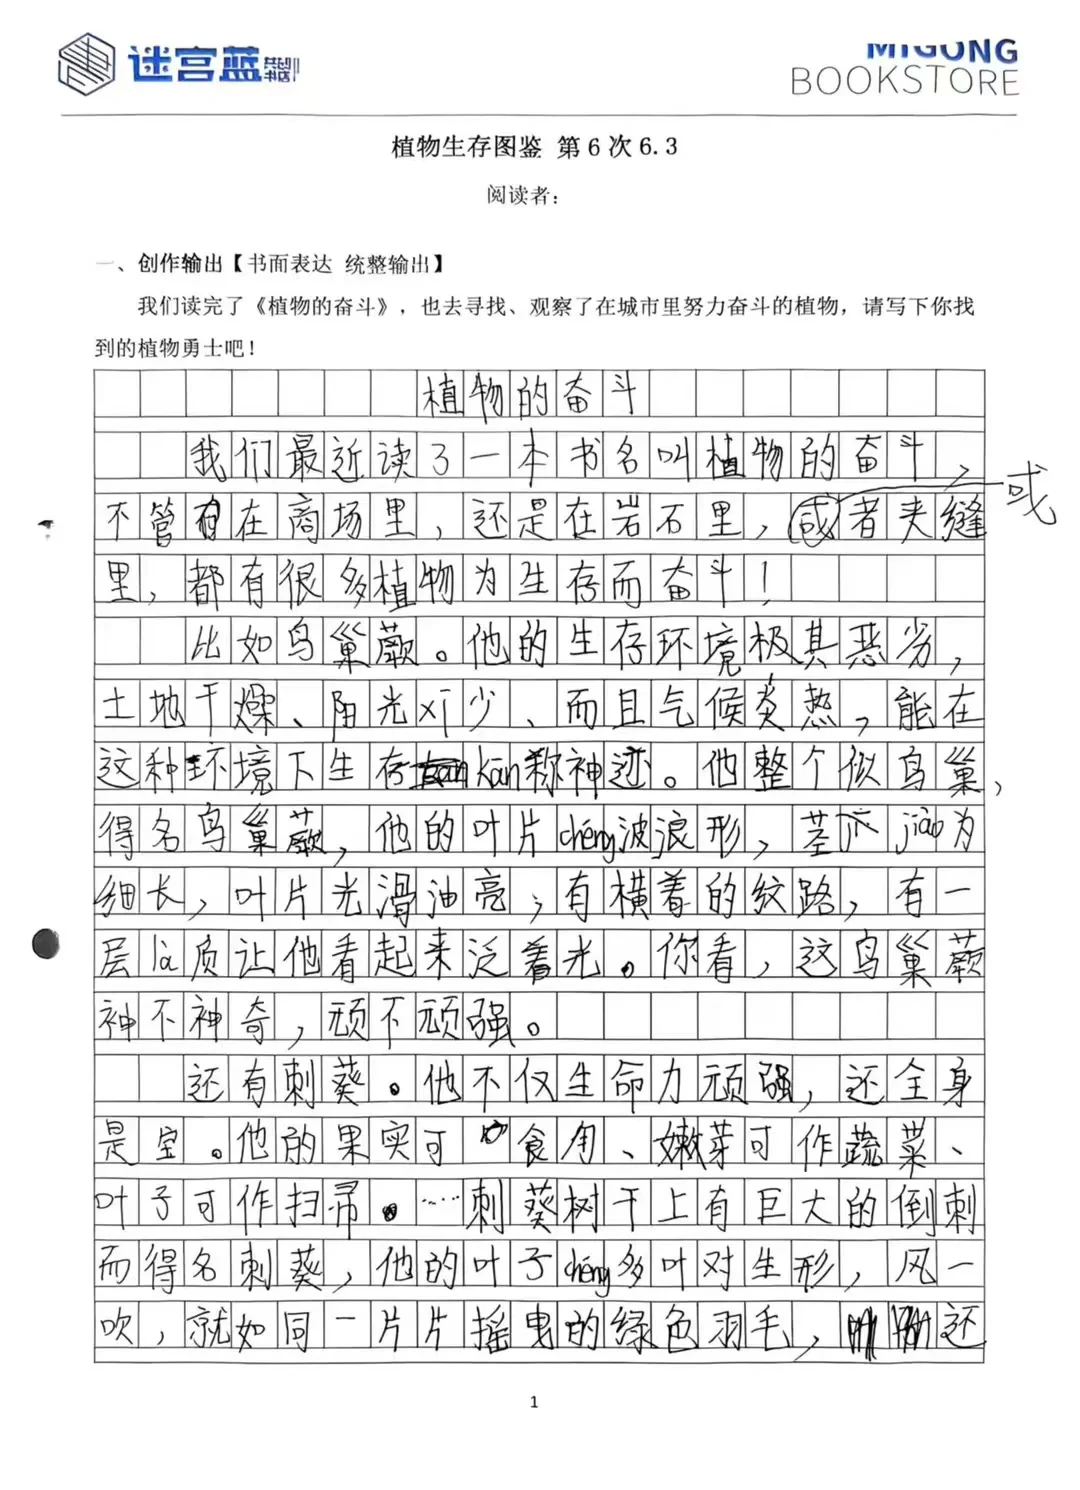 迷宫蓝 共创书店
MIGONG
BOOKSTORE
植物生存图鉴 第6次6.3
阅读者：
一、创作输出【书面表达 统整输出】
我们读完了《植物的奋斗》，也去寻找、观察了在城市里努力奋斗的植物，请写下你找
到的植物勇士吧！
植物的奋斗
我们最近读了一本书名叫植物的奋斗，
不管在商场里，还是在岩石里，或者夹缝
或
里，都有很多植物为生存而奋斗！
比如鸟巢蕨。他的生存环境极其恶劣，
土地干燥、阳光xī少、而且气候炎热，能在
这种环境下生存kān称神迹。他整个似鸟巢，
得名鸟巢蕨，他的叶片chéng波浪形，茎jiào为
细长，叶片光滑油亮，有横着的纹路，有一
层là质让他看起来泛着光。你看，这鸟巢蕨
神不神奇，顽不顽强。
还有刺葵。他不仅生命力顽强，还全身
是宝。他的果实可食用、嫩芽可作蔬菜、
叶子可作扫帚。……刺葵树干上有巨大的倒刺
而得名刺葵，他的叶子chéng多叶对生形，风一
吹，就如同一片片摇曳的绿色羽毛，还
1